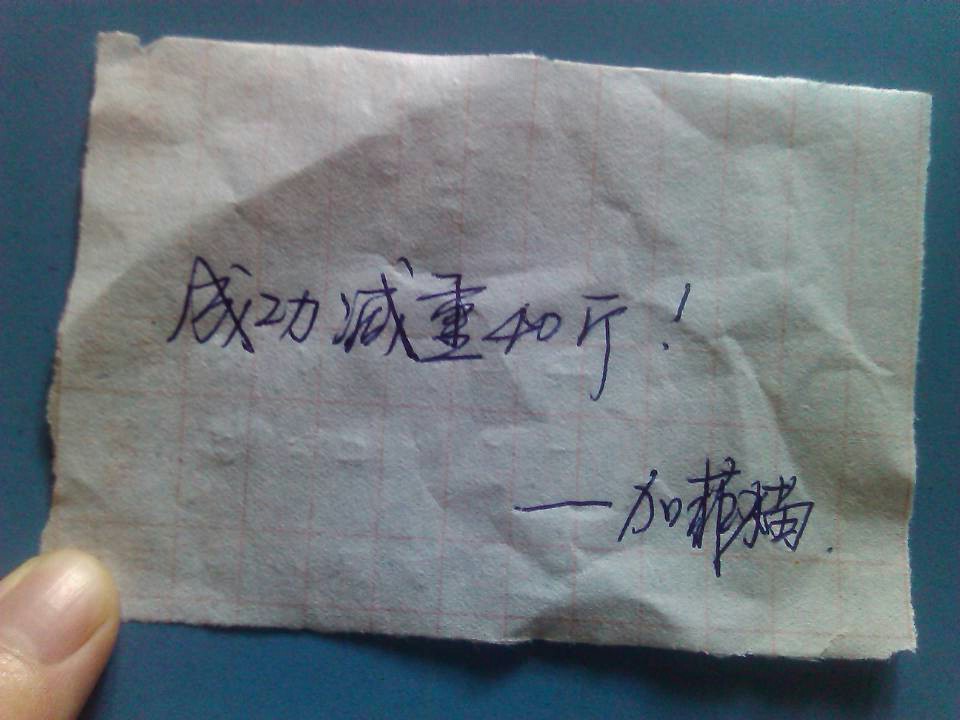 成功减重40斤！
——加菲猫.